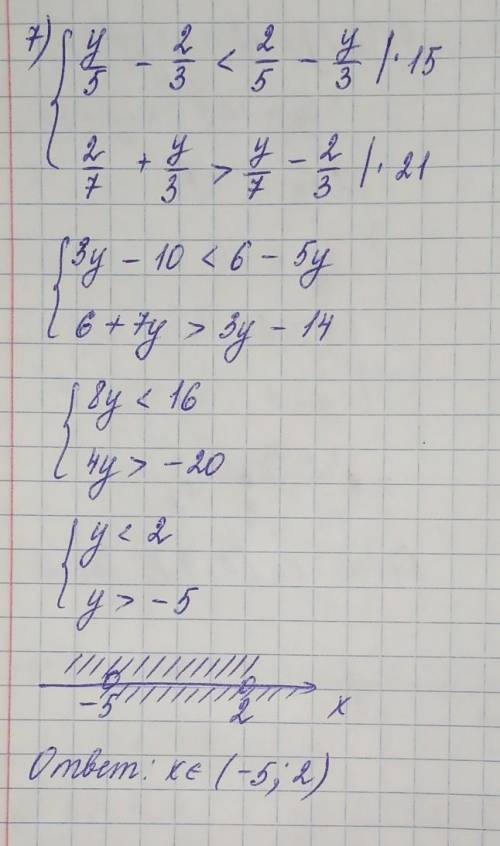 7) { y/5 - 2/3 < 2/5 - y/3 |· 15
2/7 + y/3 > y/7 - 2/3 |· 21
{ 3y - 10 < 6 - 5y
6 + 7y > 3y - 14
{ 8y < 16
4y > -20
{ y < 2
y > -5
-5 2 x
Ответ: x ∈ (-5; 2)